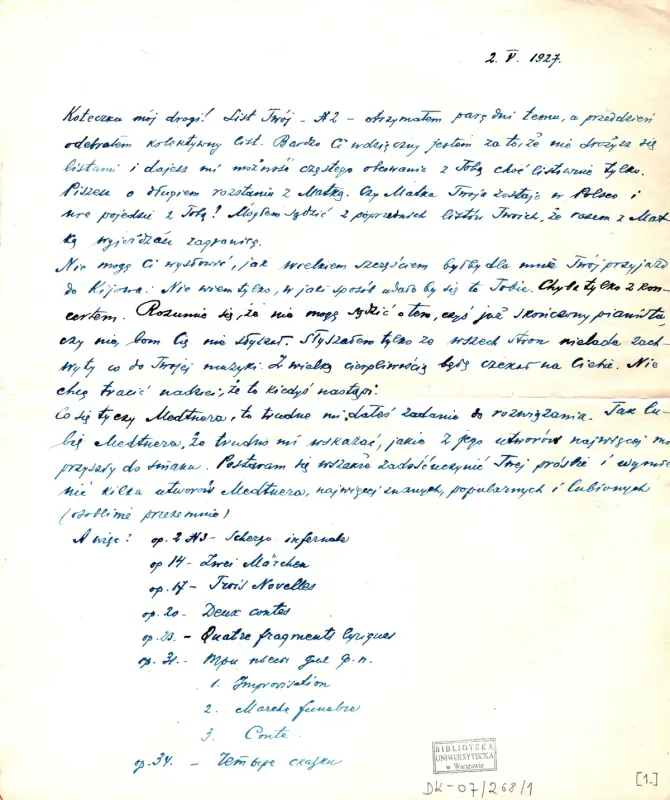 2. V. 1927.
Koteczku mój drogi! List Twój - №2 - otrzymałem parę dni temu, a przeddzień
odebrałem kolektywny list. Bardzo Ci wdzięczny jestem za to, że nie srożysz się
listami i dajesz mi możność częstego obcowania z Tobą choć listownie tylko.
Piszesz o długiem rozstaniu z Matką. Czy Matka Twoja zostaje w Polsce i
nie pojedzie z Tobą? Mogłem sądzić z poprzednich listów Twoich, że razem z Mat-
ką wyjeżdżasz zagranicę.
Nie mogę Ci wysłowić, jak wielkiem szczęściem byłby dla mnie Twój przyjazd
do Kijowa. Nie wiem tylko, w jaki sposób udało by się to Tobie. Chyba tylko z kon-
certem. Rozumie się, że nie mogę sądzić o tem, czyś już skończony pianista
czy nie, bom Cię nie słyszał. Słyszałem tylko ze wszech stron nielada zach-
wyty co do Twojej muzyki. Z wielką cierpliwością będę czekał na Ciebie. Nie
chcę tracić nadziei, że to kiedyś nastąpi.
Co się tyczy Medtnera, to trudne mi dałeś zadanie do rozwiązania. Tak lu-
bię Medtnera, że trudno mi wskazać, jakie z jego utworów najwięcej mi
przyszły do smaku. Postaram się wszakże zadośćuczynić Twej prośbie i wymie-
nić kilka utworów Medtnera, najwięcej znanych, popularnych i lubionych
(osobliwie przezemnie)
A więc: op. 2 №3 - Scherzo infernale
op 14 - Zwei Märchen
op. 17 - Trois Novelles
op. 20 - Deux contes
op. 23. - Quatre fragments lyriques
op. 31. - Три пьесы для ф.п.
1. Improvisation
2. Marche funebre
3. Conte
op. 34. - Четыре сказки
BIBLIOTEKA
UNIWERSYTECKA
w Warszawie
DK-07/268/1
[1.]